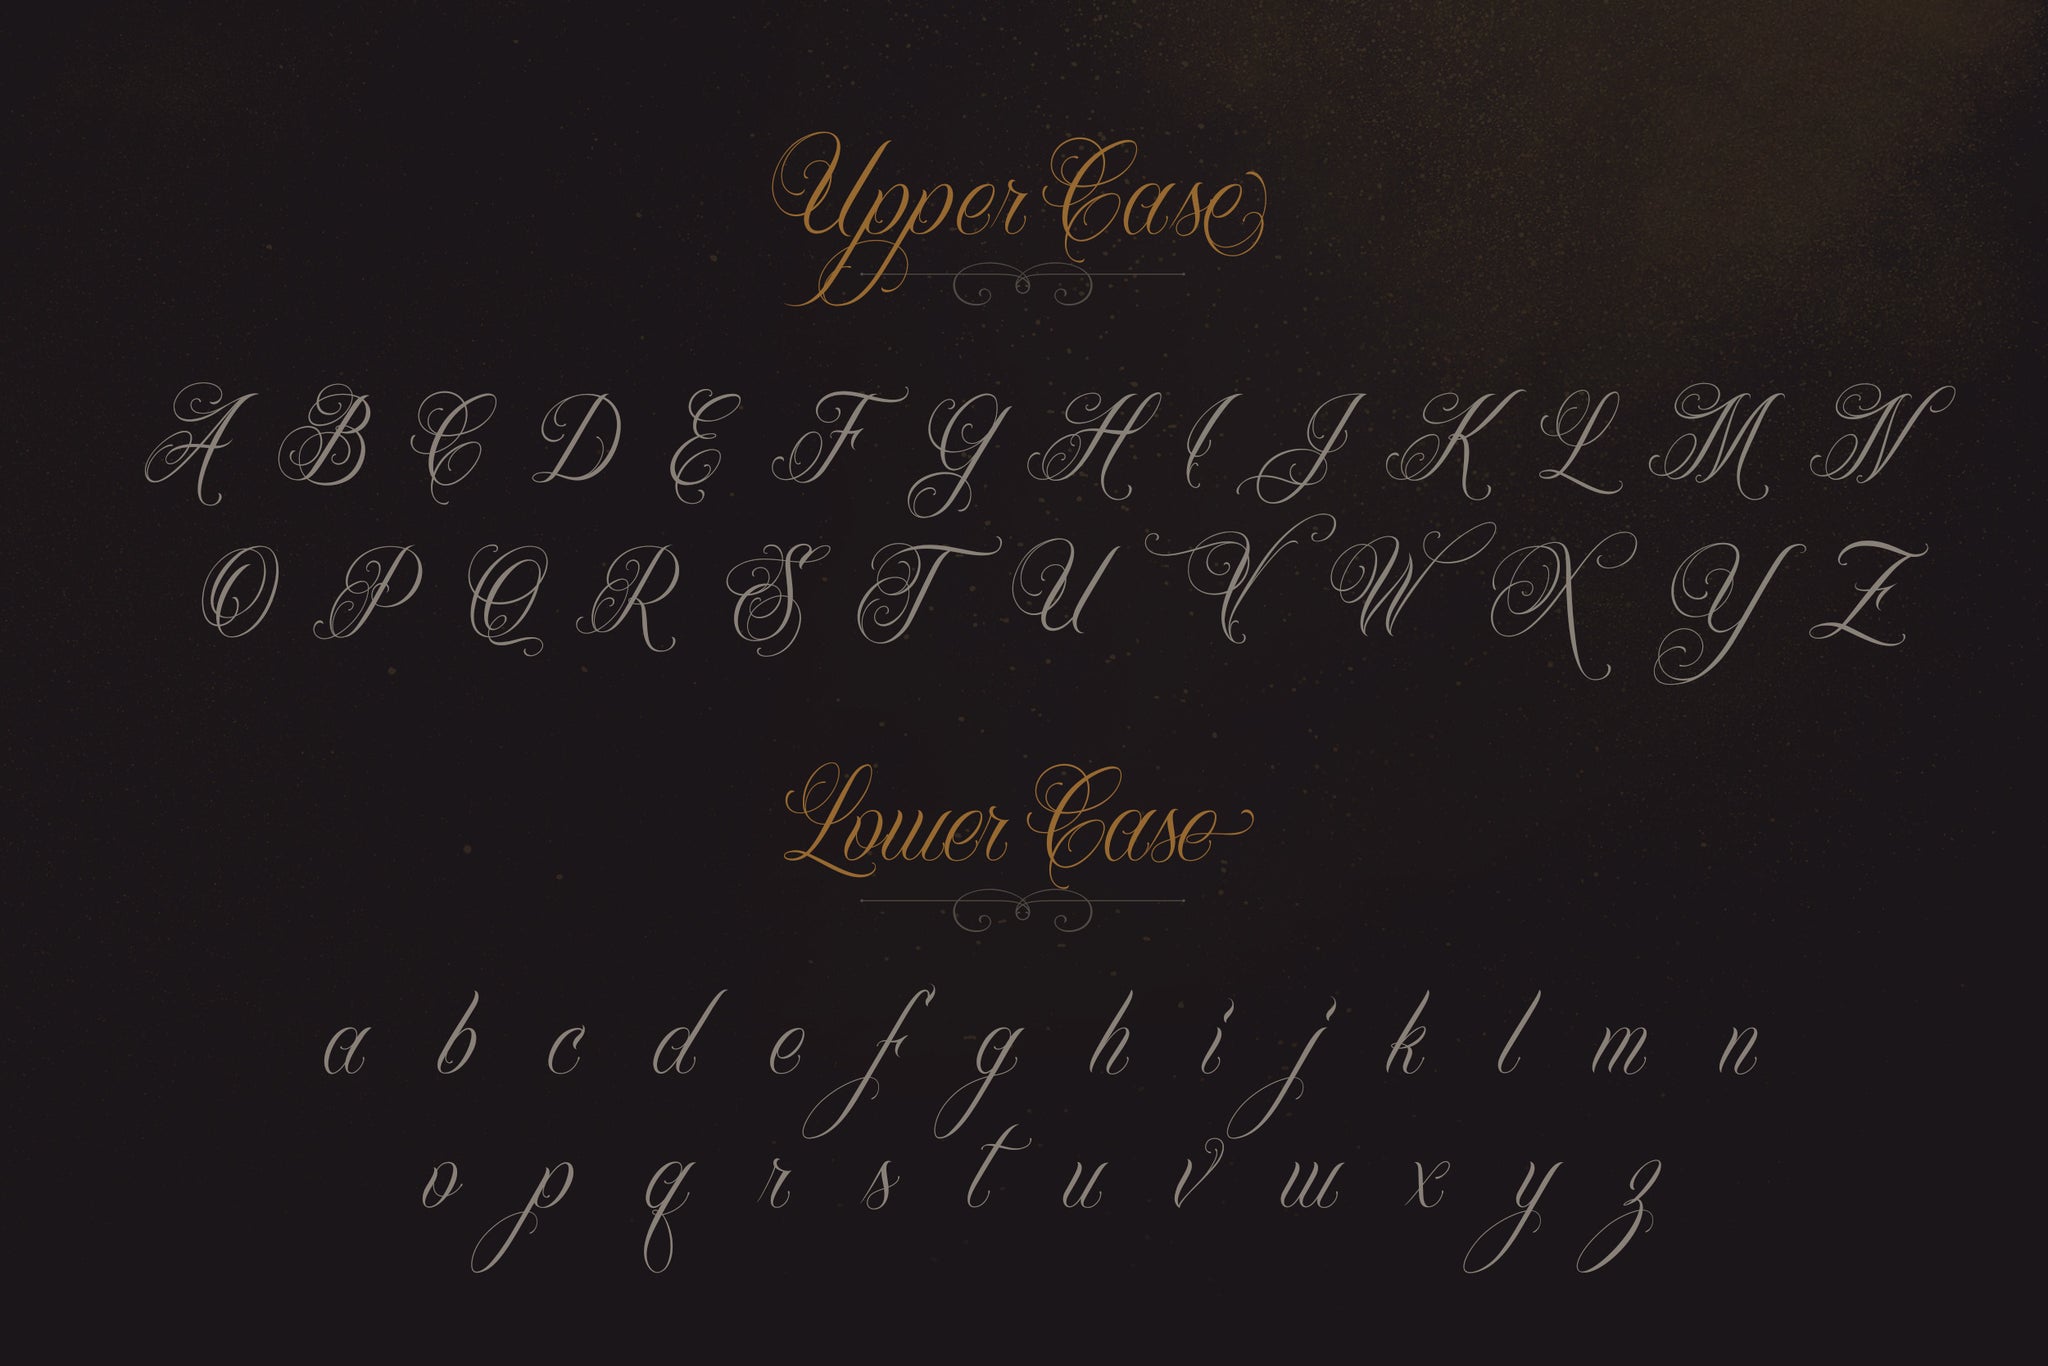 Upper Case
A B C D E F G H I J K L M N
O P Q R S T U V W X Y Z
Lower Case
a b c d e f g h i j k l m n
o p q r s t u v w x y z